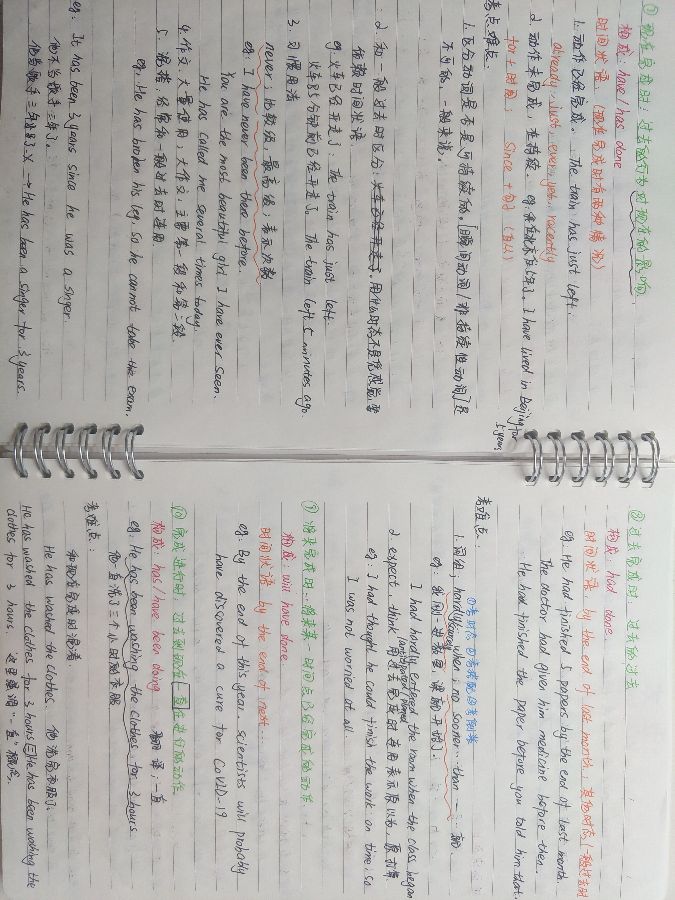 ⑦ 现在完成时：过去的行为对现在的影响
构成：have/has done
时间状语：(现在完成时有两种情况)
1. 动作已经完成。 The train has just left.
already, just, ever, yet, recently
2. 动作未完成，在持续。 eg: 我在北京住5年了。I have lived in Beijing for 5 years
for + 时间； Since + 句子 (自从)
考点难点：
1. 区分动词是否是可持续的。[瞬间动词/非持续性动词] 是
不可和 一段来说。
2. 和一般过去时区分：火车已经开走了。用什么时态不是凭感觉，
依赖时间状语
eg 火车已经开走了：The train has just left.
火车5分钟前已经开走了 The train left 5 minutes ago.
3. 习惯用法
never；比较级，最高级；表示次数
eg: I have never been there before.
You are the most beautiful girl I have ever seen.
He has called me several times today.
4. 作文大量使用，大作文，主要第一段和第二段
5. 混搭 经常和一般过去时连用
eg. He has broken his leg, so he cannot take the exam.
eg: It has been 3 years since he was a singer.
他不当歌手三年了。
他当歌手三年 X → He has been a singer for 3 years.
⑧ 过去完成时：过去的过去
构成：had done
时间状语 by the end of last month, 其他时态 (一般过去时
eg: He had finished 5 papers by the end of last month.
The doctor had given him medicine before then.
He had finished the paper before you told him that.
考难点：
①考时态 ②考搭配 ③考倒装
1. 词组：hardly/scarcely when；no sooner … than … 一 就
eg: 我刚一进教室，课就开始了。
I had hardly entered the room when the class began
2. expect, think 用过去完成时连用表示原以为，原打算
eg: I had thought he could finish the work on time, so
I was not worried at all.
⑨ 将来完成时：将来某一时间点已经完成的动作
构成：will have done
时间状语 by the end of next …
eg: By the end of this year, scientists will probably
have discovered a cure for COVID-19
⑩ 完成进行时：过去到现在一直在进行的动作
构成：has/have been doing 翻译：一直
eg: He has been washing the clothes for 3 hours.
他一直洗了三个小时的衣服
考难点：
和现在完成时混淆
He has washed the clothes. 他洗完衣服了.
He has washed the clothes for 3 hours = He has been washing the
clothes for 3 hours. 这里强调"一直"概念。